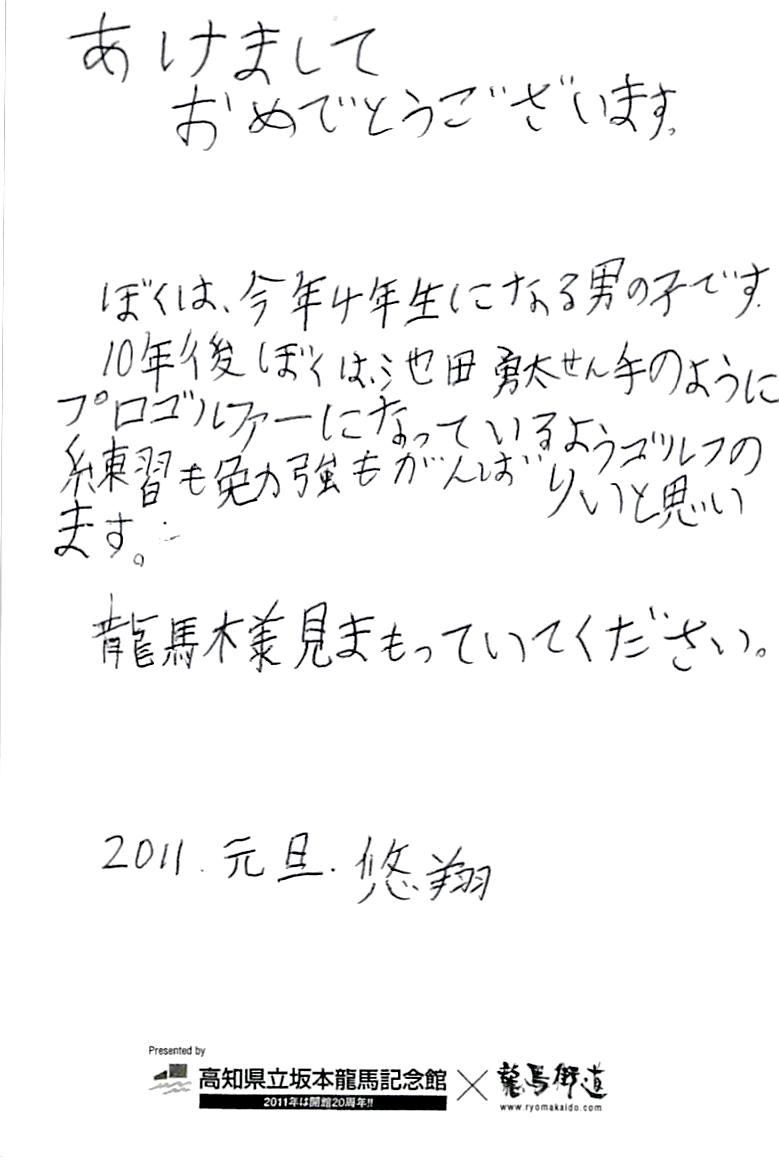 あけまして
おめでとうございます。
ぼくは、今年4年生になる男の子です.
10年後ぼくは、池田勇太せん手のように
プロゴルファーになっているようゴルフの
練習も勉強もがんばりいと思い
ます。
龍馬様見まもっていてください。
2011.元旦.悠翔
Presented by
高知県立坂本龍馬記念館
2011年は開館20周年!!
×
龍馬街道
www.ryomakaido.com